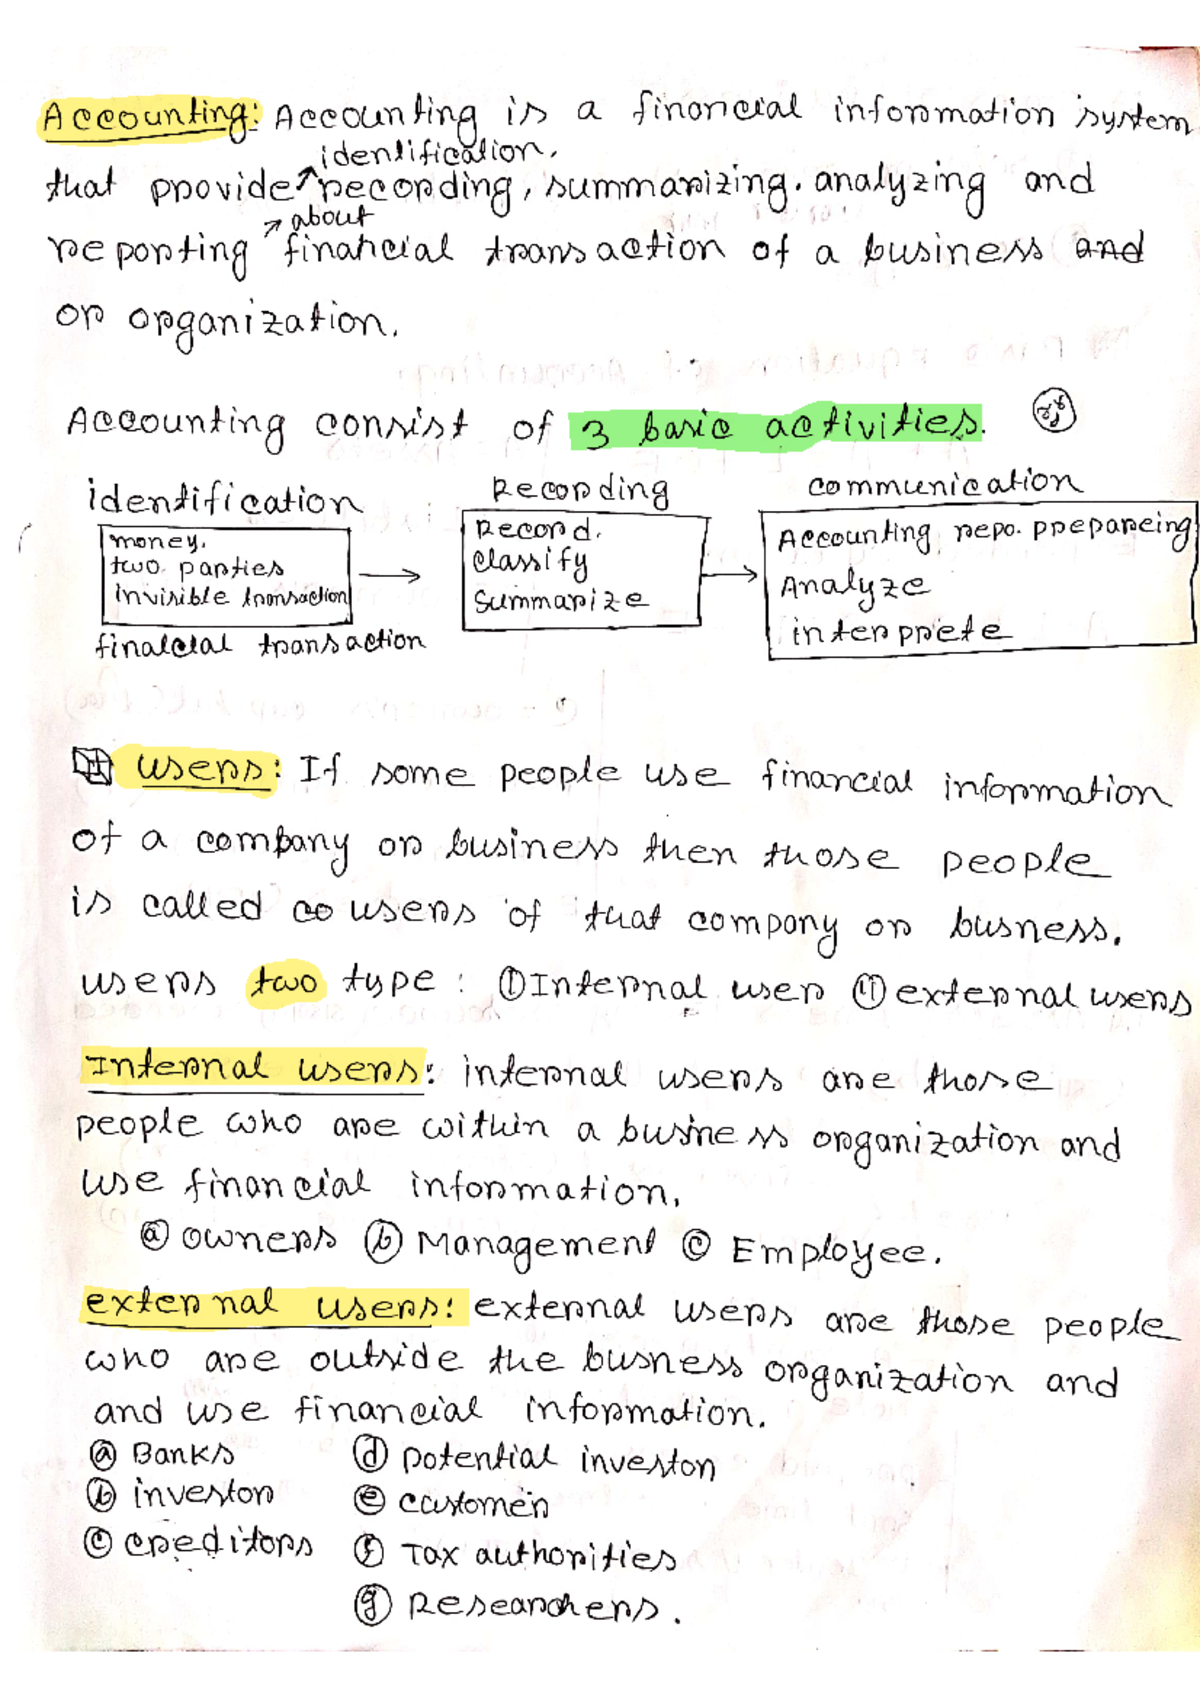 Accounting: Accounting is a financial information system
identification,
that provide recording, summarizing. analyzing and
about
reporting financial transaction of a business and
or organization.
Accounting consist of 3 basic activities.
identification
Recording
communication
money.
two parties
invisible transaction
Record.
classify
summarize
Accounting repo. prepareing
Analyze
interprete
finalcial transaction
users: If some people use financial information
of a company or business then those people
is called co users of that company or busness.
users two type : ① Internal user ② external users
Internal users: internal users are those
people who are within a business organization and
use financial information,
ⓐ owners ⓑ Management ⓒ Employee.
external users: external users are those people
who are outside the busness organization and
and use financial information.
ⓐ Banks
ⓑ investor
ⓒ creditors
ⓓ potential investor
ⓔ customer
ⓕ Tax authorities
ⓖ Researchers.